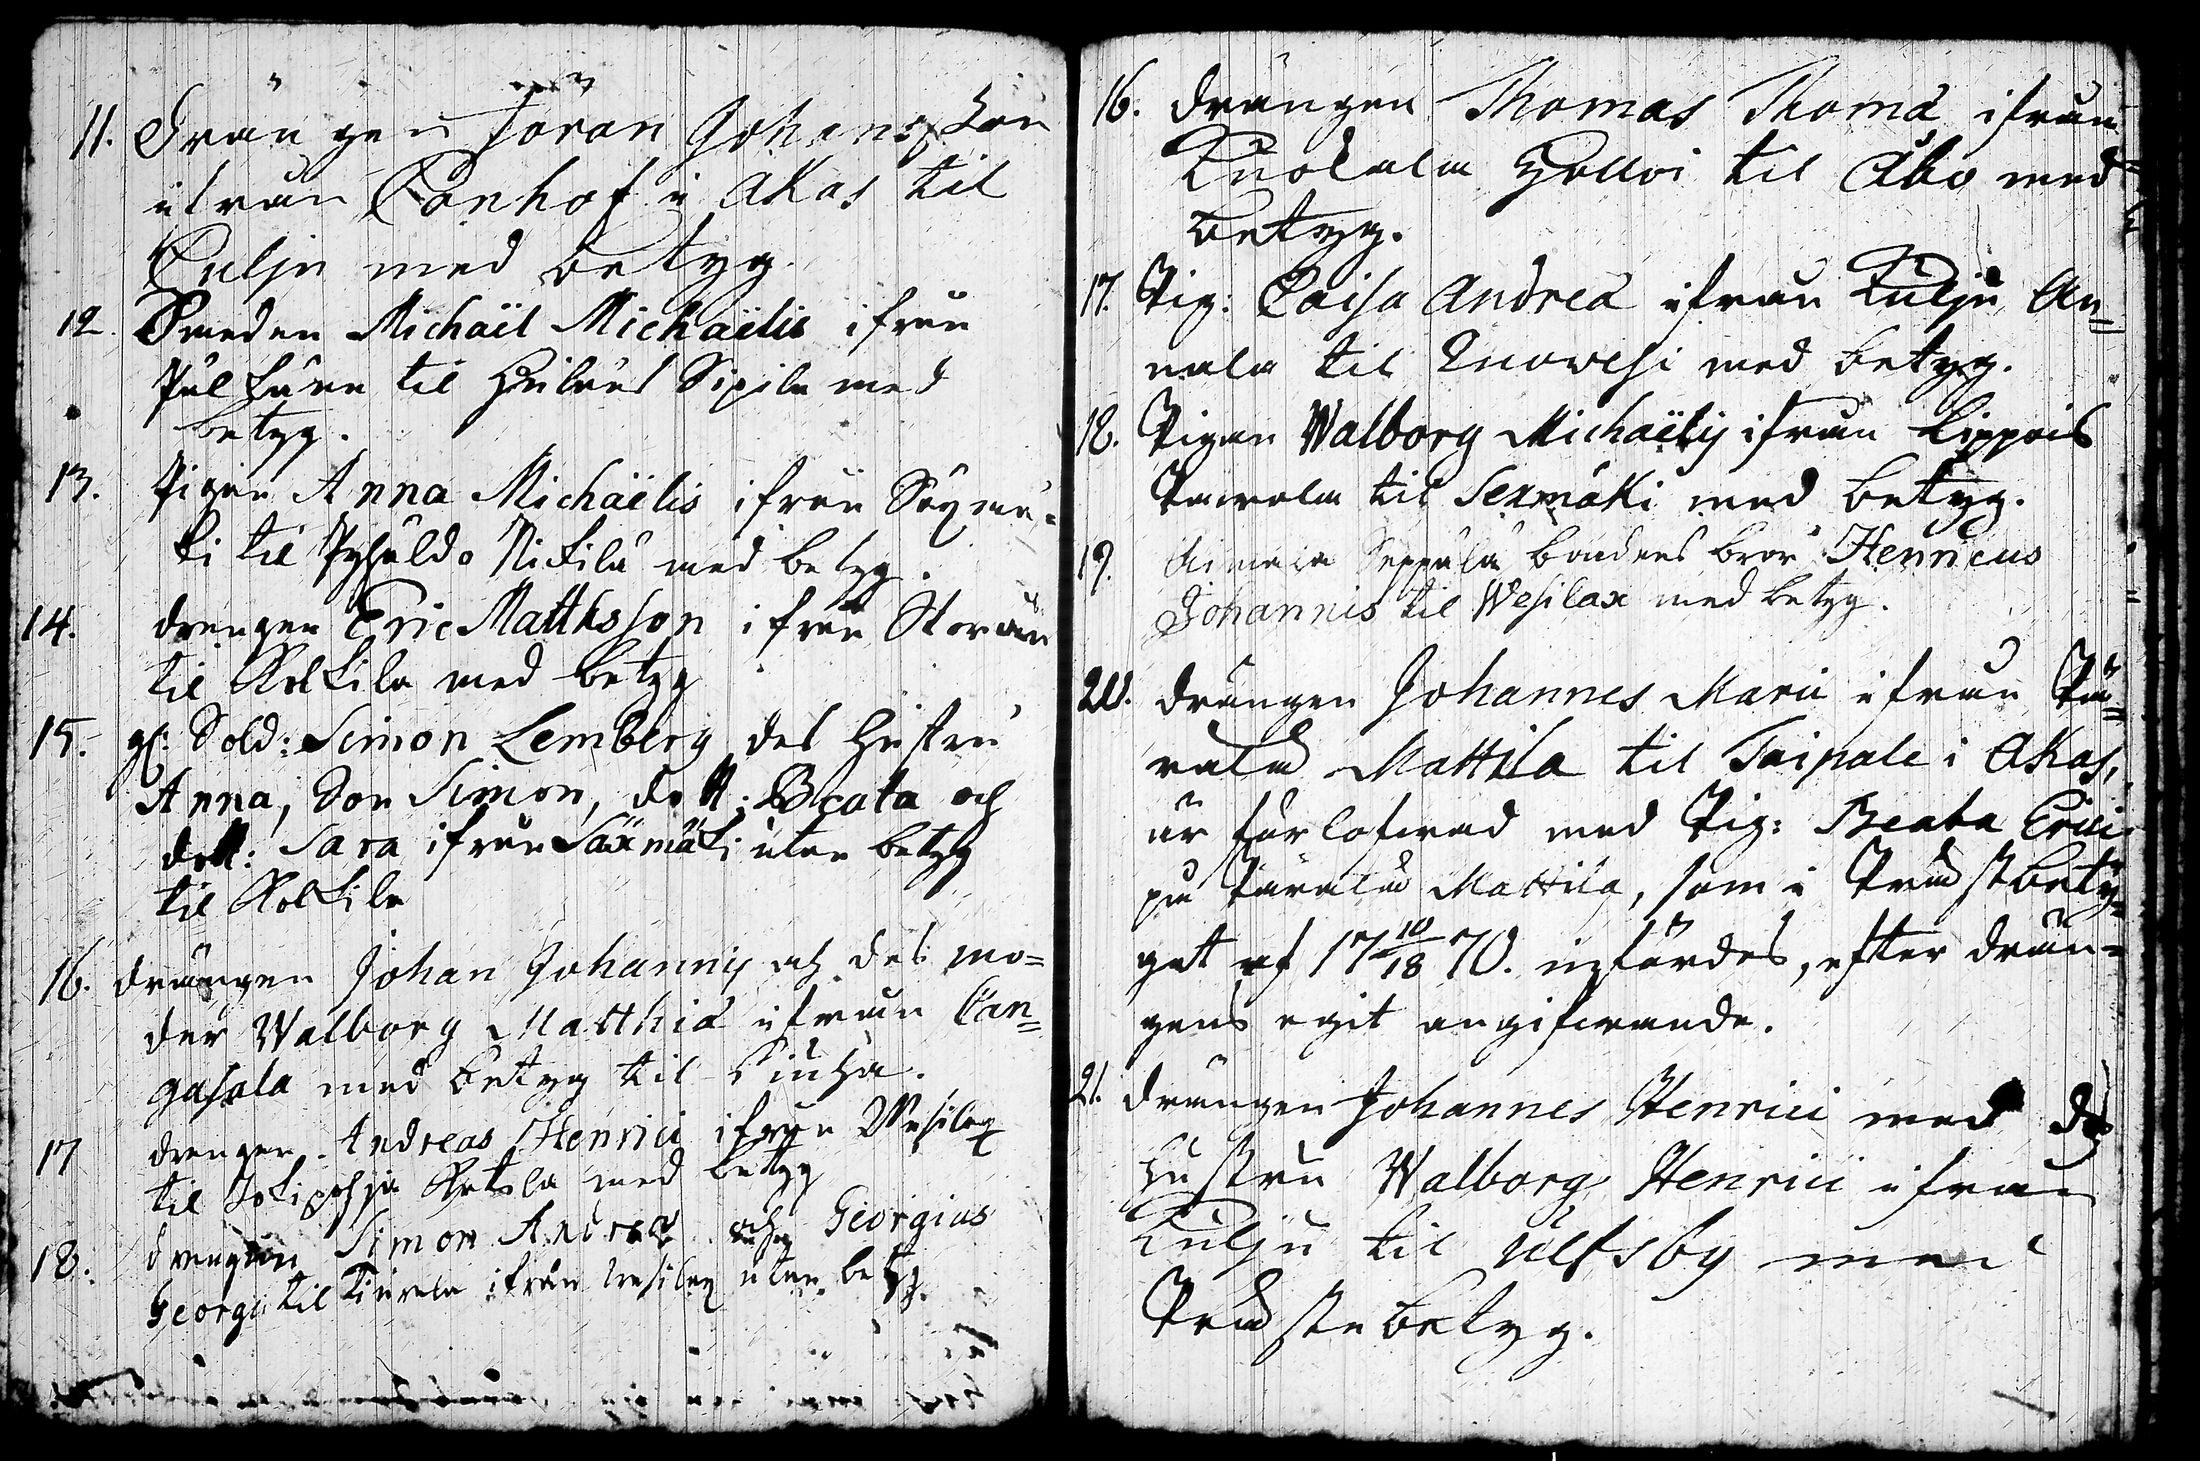 11. Drängen Jöran Johansson
ifrån Lonhof i Akas til
Kulju med betyg.
12. Smeden Michaël Michaëlis ifrån
Pälkäne til Sipilä med
betyg.
13. Pigan Anna Michaëlis ifrån Säxmä-
ki til Pyhäldo Nickilä med betyg.
14. drengen Eric Mattksson ifrån
til med betyg
15. Sold: Simon Lemberg des hustru
Anna, Son Simon, dott: Beata och
dott: Sara ifrån Säxmäki utan betyg
til
16. drängen Johan Johannis och des mo=
der Walborg Matthiæ ifrån Can=
gasala med betyg til
17 drengen Andreas Henrici ifrån Wesilax
til med betyg
18. drengen Simon Andreæ och Georgius
Georgii til ifrån Wesilax utan betyg.
16. drängen Thomas Thomæ ifrån
Kuokala til Åbo med
betyg.
17. Pig: Caisa Andreæ ifrån Kulju An=
nala til Knowesi med betyg.
18. Pigan Walborg Michaëlis ifrån Lippois
til Sexmäki med betyg.
19. Seppälä bondens bror Henricus
Johannis til Wesilax med betyg.
20. drängen Johannes Marci ifrån
Mattila til Taipale i Akas,
är förlofwad med Pig: Beata Erici
på Mattila, som i Prästbety=
get af 17 10/18 70. infördes, efter drän=
gens egit angifwande.
21. drängen Johannes Henrici med des
hustru Walborg Henrici ifrån
Kulju til Ulfsby med
Prästebetyg.